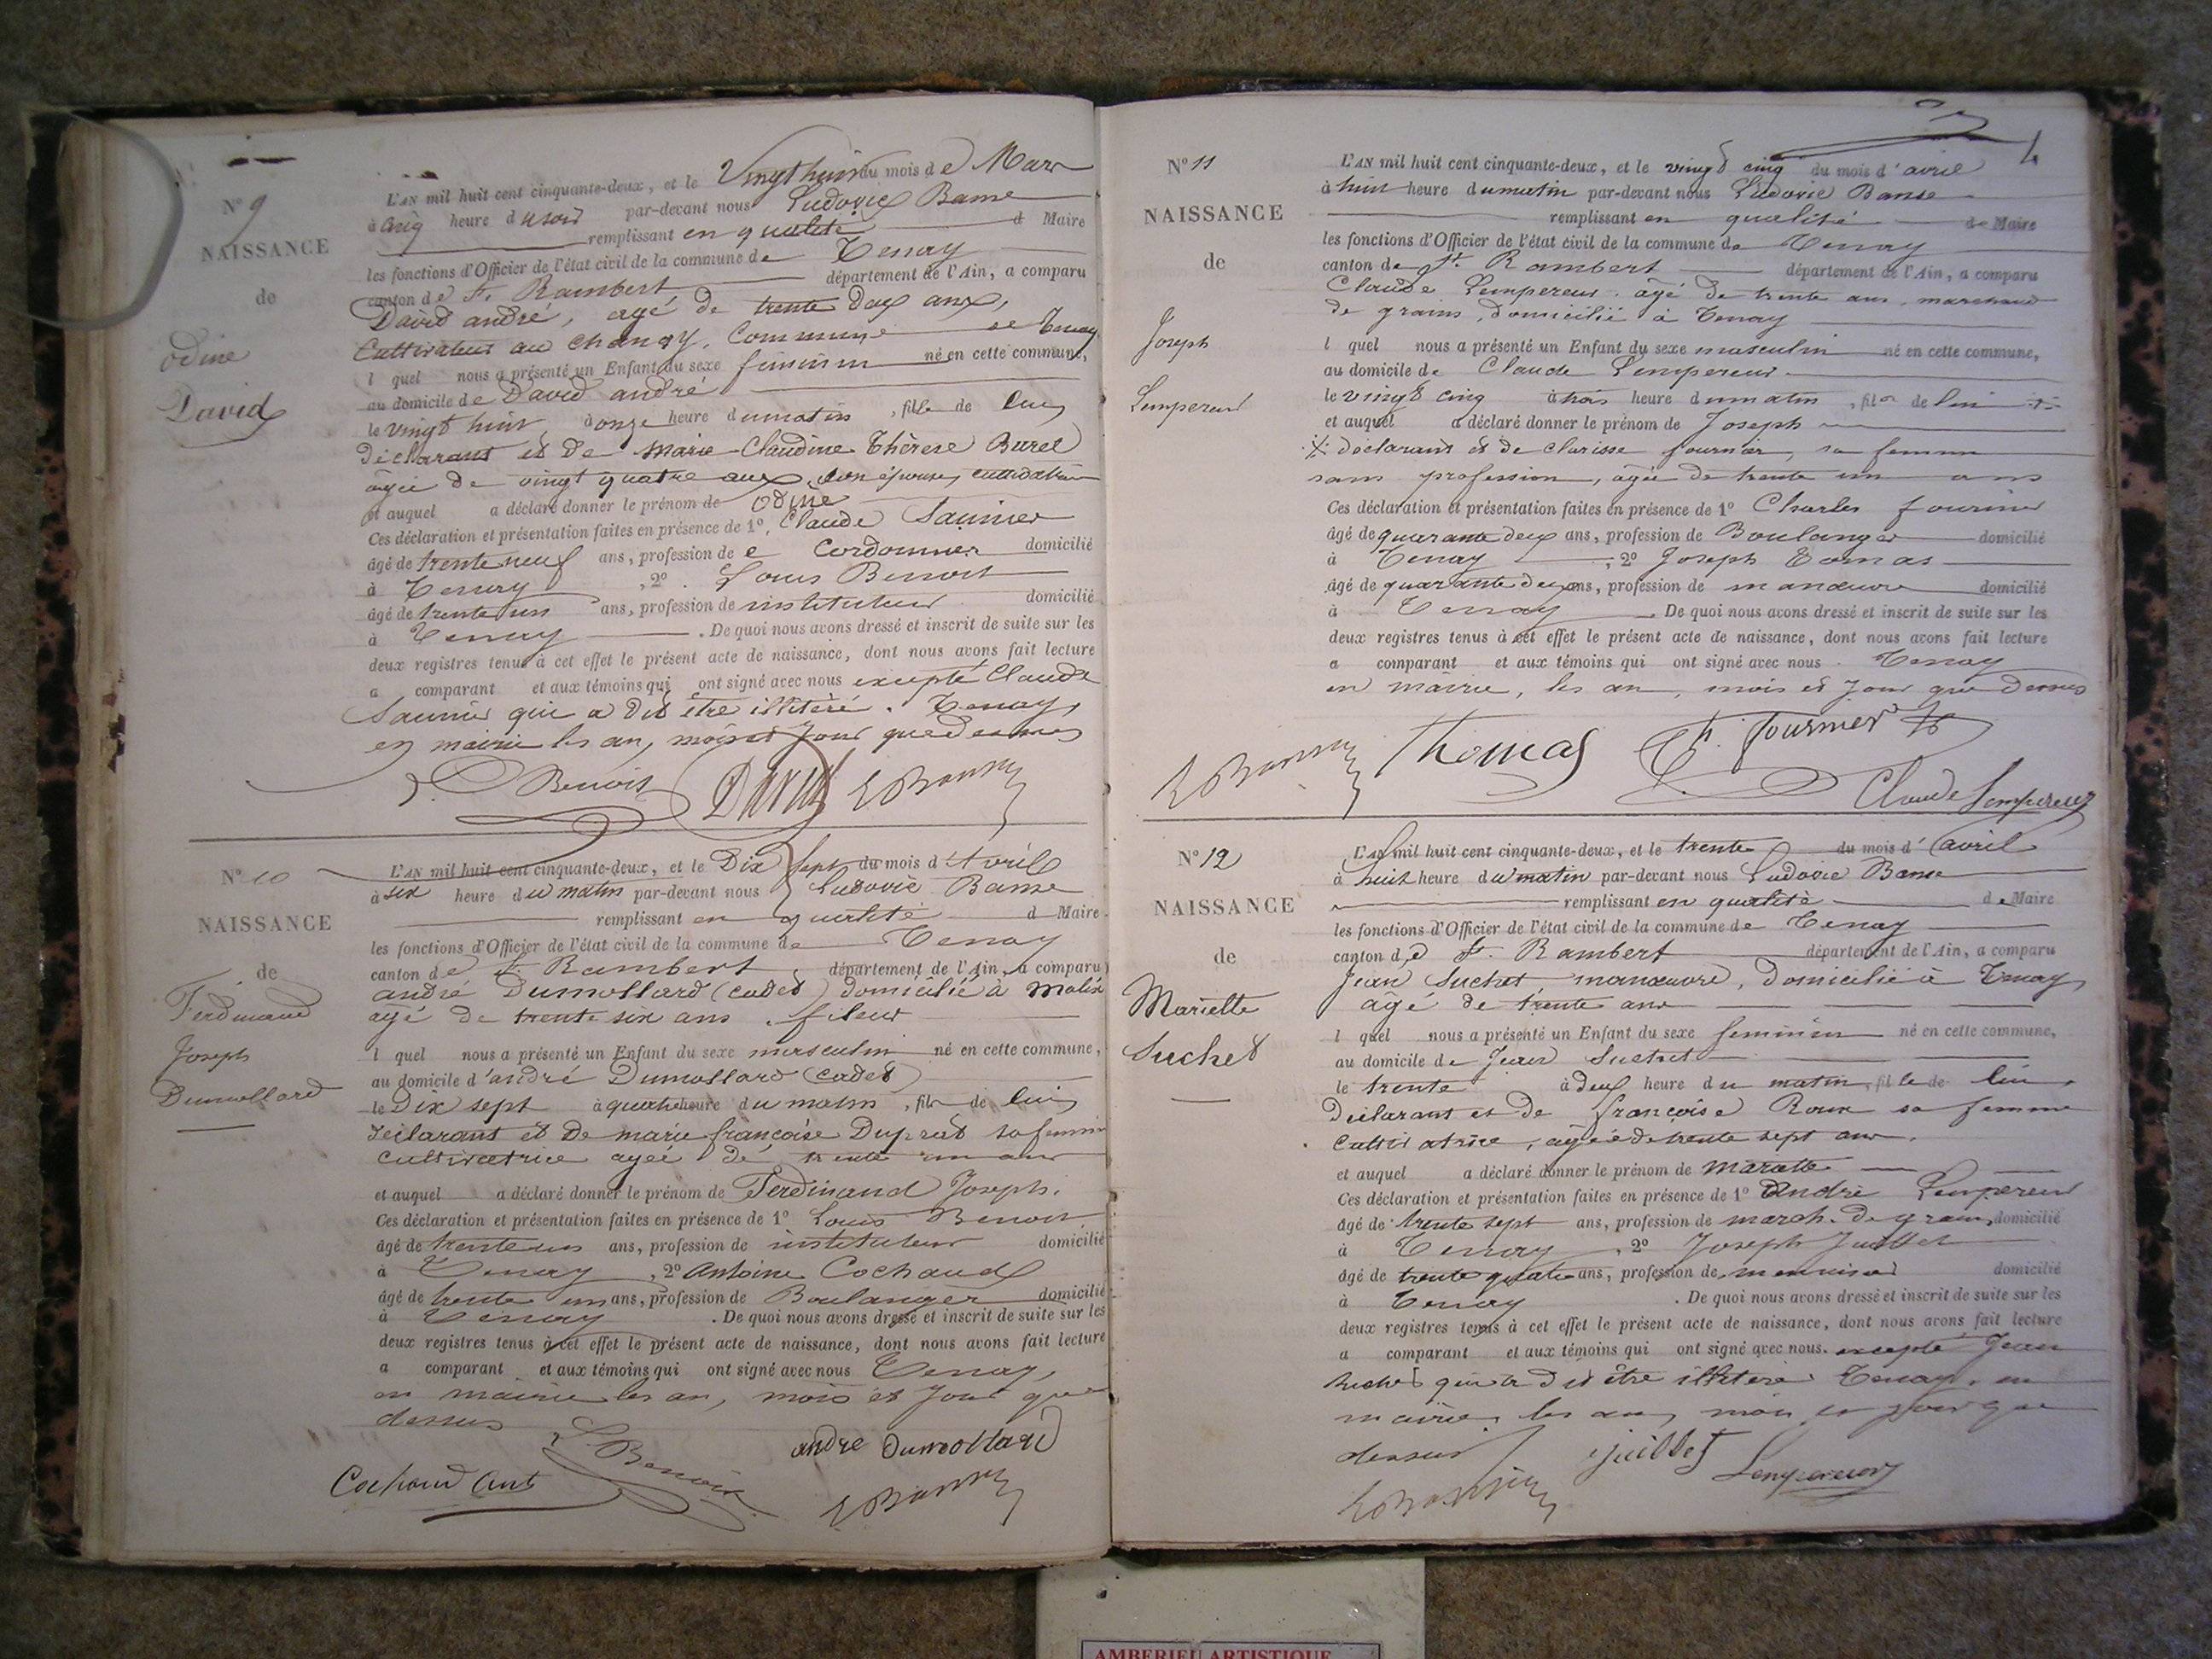 N° 9
NAISSANCE
de
Odine
David
L'AN mil huit cent cinquante-deux, et le Vingt huit du mois de Mars
à cinq heure du soir par-devant nous Ludovic
remplissant en qualité d Maire
les fonctions d'Officier de l'état civil de la commune de Tenay
canton de St. Rambert département de l'Ain, a comparu
David andré, agé de trente Deux ans,
Cultivateur au chanay, Commune de Tenay
l quel nous a présenté un Enfant du sexe féminin né en cette commune,
au domicile de David andré
le vingt huit à onze heure du matin, fille de lui
Déclarant et De Marie Claudine Thérèse Buret
agée de vingt quatre ans, son épouse, cultivatrice
et auquel a déclaré donner le prénom de odine
Ces déclaration et présentation faites en présence de 1° Claude Saunier
âgé de trente neuf ans, profession de Cordonnier domicilié
à Tenay, 2° Louis Benoit
âgé de trente un ans, profession de instituteur domicilié
à Tenay. De quoi nous avons dressé et inscrit de suite sur les
deux registres tenus à cet effet le présent acte de naissance, dont nous avons fait lecture
a comparant et aux témoins qui ont signé avec nous excepté Claude
Saunier qui a dit être illitéré. Tenay,
en mairie les an, mois et Jour que dessus
Benoit David
N° 10
NAISSANCE
de
Ferdinand
Joseph
Dumollard
L'AN mil huit cent cinquante-deux, et le Dix Sept du mois d'Avril
à six heure du matin par-devant nous Ludovic
remplissant en qualité d Maire
les fonctions d'Officier de l'état civil de la commune de Tenay
canton de St. Rambert département de l'Ain, a comparu
andré Dumollard (cadet) domicilié à Malix
agé de trente six ans. fileur
l quel nous a présenté un Enfant du sexe masculin né en cette commune,
au domicile d'andré Dumollard (cadet)
le Dix sept à quatre heure du matin, fils de lui
déclarant et De marie françoise Duprat sa femme
Cultivatrice agée de trente un ans
et auquel a déclaré donner le prénom de Ferdinand Joseph.
Ces déclaration et présentation faites en présence de 1° Louis Benoit
âgé de trente un ans, profession de instituteur domicilié
à Tenay, 2° Antoine Cochaud
âgé de trente un ans, profession de Boulanger domicilié
à Tenay. De quoi nous avons dressé et inscrit de suite sur les
deux registres tenus à cet effet le présent acte de naissance, dont nous avons fait lecture
a comparant et aux témoins qui ont signé avec nous Tenay,
en mairie les an, mois et Jour que
dessus
Benoit andre Dumollard
Cochaud Ant
N° 11
NAISSANCE
de
Joseph
Lempereur
L'AN mil huit cent cinquante-deux, et le vingt cinq du mois d'avril
à huit heure du matin par-devant nous Ludovic
remplissant en qualité de Maire
les fonctions d'Officier de l'état civil de la commune de Tenay
canton de St. Rambert département de l'Ain, a comparu
Claude Lempereur. agé de trente ans, marchand
de grains, domicilié à Tenay
l quel nous a présenté un Enfant du sexe masculin né en cette commune,
au domicile de Claude Lempereur
le vingt cinq à trois heure du matin, fils de lui
et auquel a déclaré donner le prénom de Joseph
déclarant et de Clarisse fournier, sa femme
sans profession, agée de trente un ans
Ces déclaration et présentation faites en présence de 1° Charles fournier
âgé de quarante deux ans, profession de Boulanger domicilié
à Tenay, 2° Joseph Tomas
âgé de quarante deux ans, profession de manœuvre domicilié
à Tenay. De quoi nous avons dressé et inscrit de suite sur les
deux registres tenus à cet effet le présent acte de naissance, dont nous avons fait lecture
a comparant et aux témoins qui ont signé avec nous. Tenay
en mairie, les an, mois et Jour que Dessus
Thomas fournier
Claude Lempereur
N° 12
NAISSANCE
de
Mariette
Suchet
L'AN mil huit cent cinquante-deux, et le trente du mois d'avril
à huit heure du matin par-devant nous Ludovic
remplissant en qualité de Maire
les fonctions d'Officier de l'état civil de la commune de Tenay
canton de St. Rambert département de l'Ain, a comparu
Jean Suchet manœuvre, domicilié à Tenay
agé de trente ans
l quel nous a présenté un Enfant du sexe feminin né en cette commune,
au domicile de Jean Suchet
le trente à deux heure du matin, fille de lui
Déclarant et de françoise Roux sa femme
Cultivatrice, agée de trente sept ans.
et auquel a déclaré donner le prénom de mariette
Ces déclaration et présentation faites en présence de 1° André Lempereur
âgé de trente sept ans, profession de march. de grain, domicilié
à Tenay, 2° Joseph Juillet
âgé de trente quatre ans, profession de menuisier domicilié
à Tenay. De quoi nous avons dressé et inscrit de suite sur les
deux registres tenus à cet effet le présent acte de naissance, dont nous avons fait lecture
a comparant et aux témoins qui ont signé avec nous. excepté Jean
Suchet qui a dit être illitéré Tenay, en
mairie, les an, mois et jour que
dessus
juillet Lempereur
AMBERIEU ARTISTIQUE